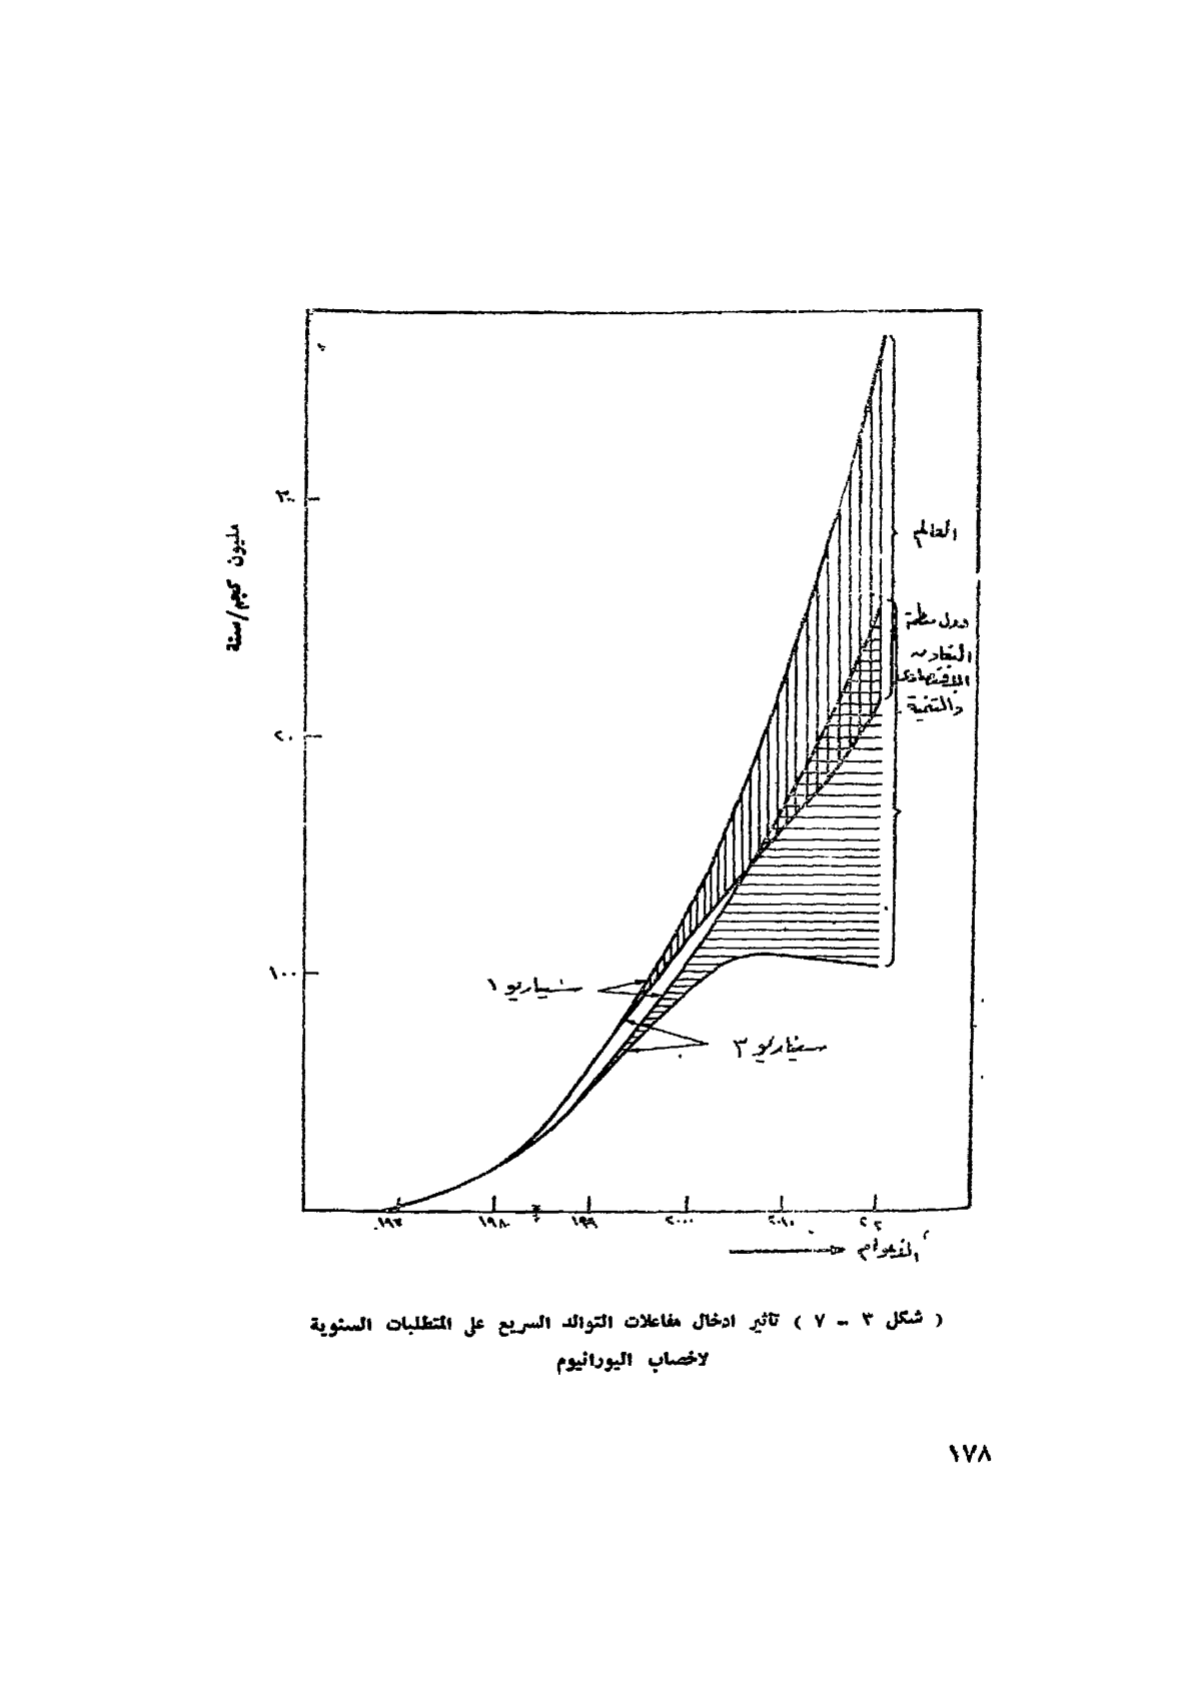 ٢٠
مليون كجم/سنة
العالم
دول منظمة
التعاون
الاقتصادى
والتنمية
١٠٠
سيناريو ١
سيناريو ٣
١٩٨٠ ١٩٩ ٢٠٠٠ ٢٠١٠
( شكل ٣ - ٧ ) تأثير ادخال مفاعلات التوالد السريع على المتطلبات السنوية
لاخصاب اليورانيوم
١٧٨